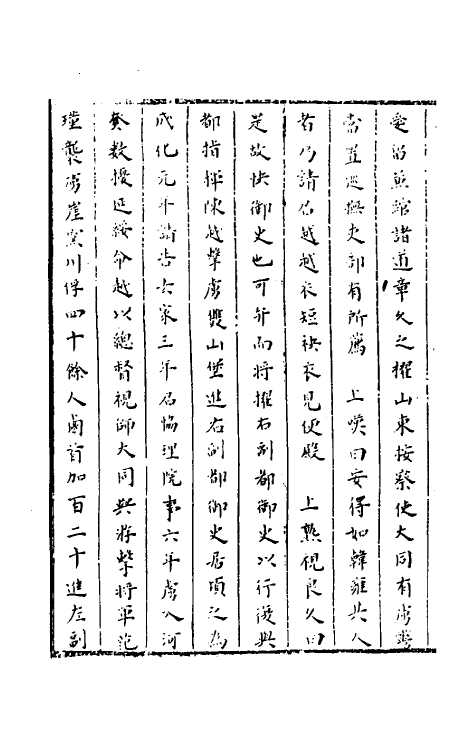 望留兼綰諸道章久之擢山東按察使大同有虜警
當置巡撫吏部有所薦　上嘆曰安得如韓雍其人
者乃請召越越衣短袂衣見便殿　上熟視良久曰
是故快御史也可弁而將擢右副都御史以行復與
都指揮陳越擊虜雙山堡進右副都御史居頃之為
成化元年請告去家三年召協理院事六年虜入河
套數擾延綏命越以總督視師大同與游擊將軍范
瑾襲虜崖窯川俘四十餘人鹵首加百二十進左副